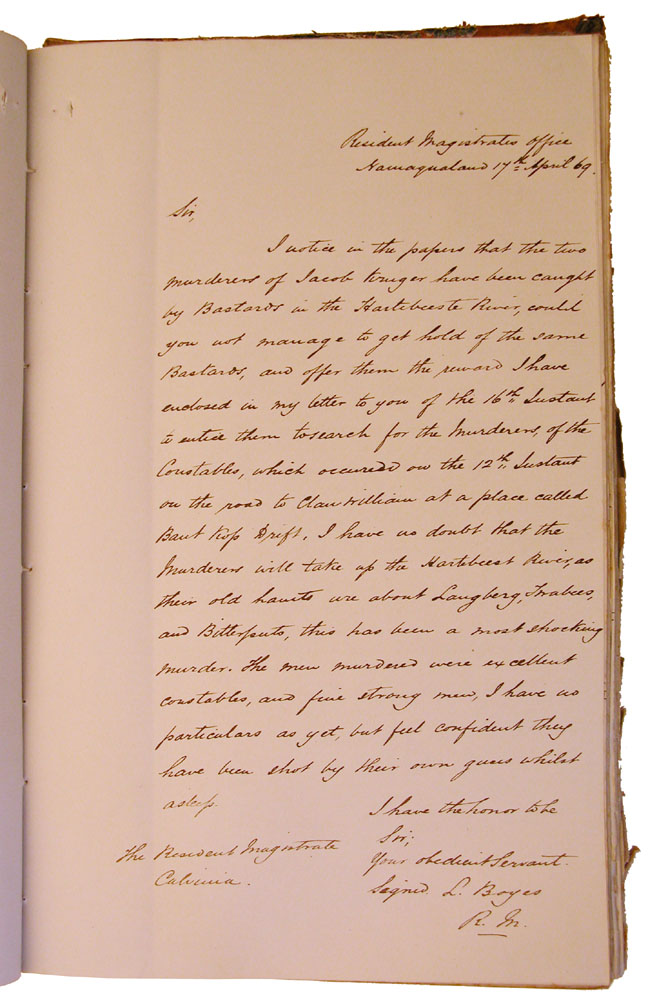 Resident Magistrates Office
Namaqualand 17th April 69.
Sir,
I notice in the papers that the two
murderers of Jacob Kruger have been caught
by Bastards in the Hartebeeste River, could
you not manage to get hold of the same
Bastards, and offer them the reward I have
enclosed in my letter to you of the 16th Instant
to entice them to search for the Murderers, of the
Constables, which occured on the 12th Instant
on the road to Clanwilliam at a place called
Kop Drift. I have no doubt that the
Murderers will take up the Hartebeest River, as
their old haunts are about Langberg,
and Bitterputs, this has been a most shocking
murder. The men murdered were excellent
constables, and fine strong men, I have no
particulars as yet, but feel confident they
have been shot by their own guns whilst
asleep.
I have the honor to be
Sir;
Your obedient Servant.
Signed L. Boyes
R. M.
The Resident Magistrate
Calvinia.